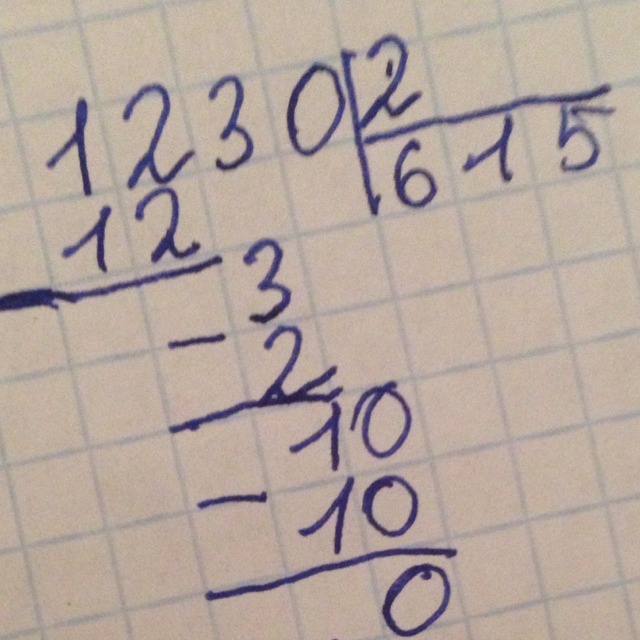 1230 2
615
12
3
- 2
10
- 10
0